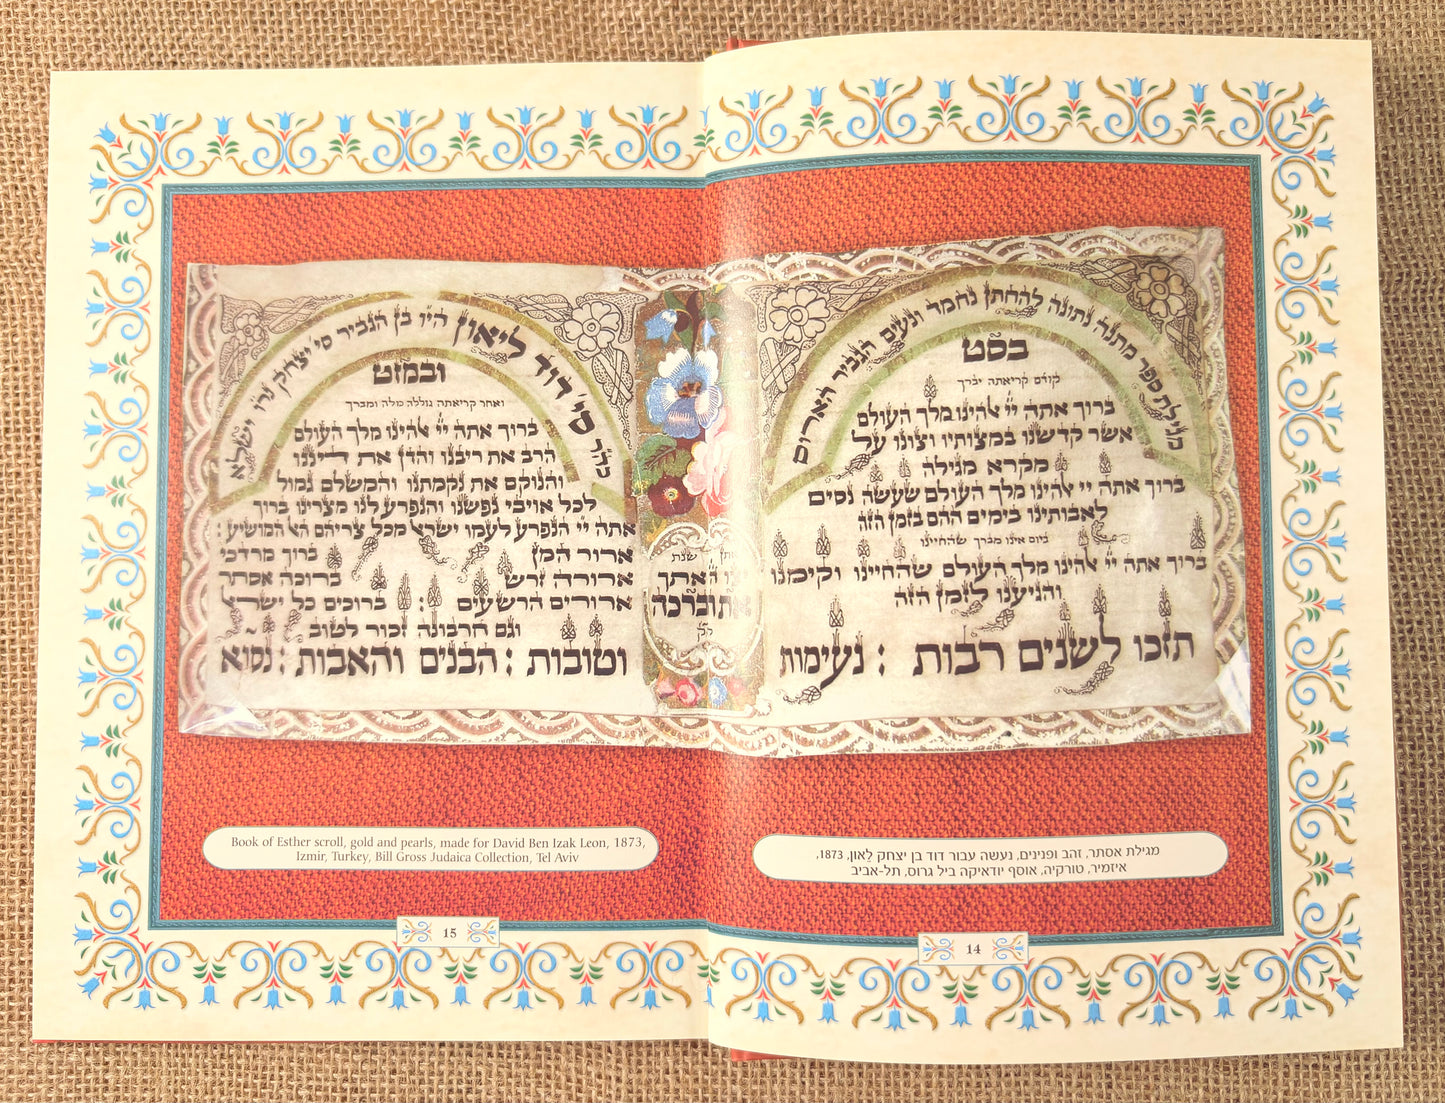 מגילת ספר מתנה נתונה להחתן נחמד ונעים הגביר האדום
בסט
קודם קריאתה יברך
ברוך אתה יי אלהינו מלך העולם
אשר קדשנו במצותיו וצונו על
מקרא מגילה
ברוך אתה יי אלהינו מלך העולם שעשה נסים
לאבותינו בימים ההם בזמן הזה
ביום אינו מברך שהחיינו
ברוך אתה יי אלהינו מלך העולם שהחיינו וקימנו
והגיענו לזמן הזה
תזכו לשנים רבות : נעימות
שנת
את וברכה
כהר סי' דוד ליאון היו בן הגביר סי יצחק נרו
ובמזט
ואחר קריאתה גוללה כולה ומברך
ברוך אתה יי אלהינו מלך העולם
הרב את ריבנו והדן את דיננו
והנוקם את נקמתנו והמשלם גמול
לכל אויבי נפשנו והנפרע לנו מצרינו ברוך
אתה יי הנפרע לעמו ישראל מכל צריהם הא המושיע :
ארור המן ברוך מרדכי
ארורה זרש ברוכה אסתר
ארורים הרשעים : ברוכים כל ישראל
וגם חרבונה זכור לטוב
וטובות : הבנים והאבות : נסוא
מגילת אסתר, זהב ופנינים, נעשה עבור דוד בן יצחק לֶאון, 1873,
איזמיר, טורקיה, אוסף יודאיקה ביל גרוס, תל-אביב
14
Book of Esther scroll, gold and pearls, made for David Ben Izak Leon, 1873,
Izmir, Turkey, Bill Gross Judaica Collection, Tel Aviv
15